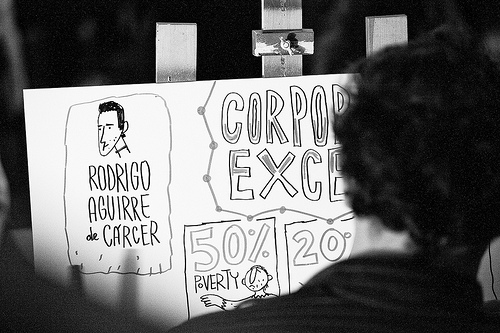 RODRIGO
AGUIRRE
de CÁRCER
CORPOR
EXCE
50%
POVERTY
20%